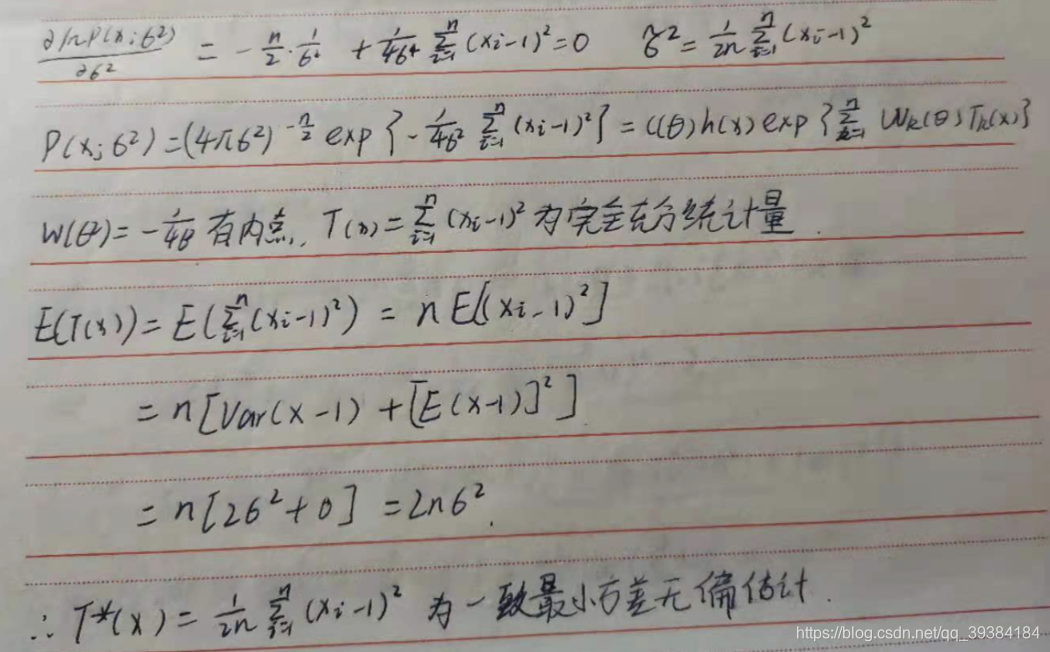 ∂lnP(x;6²)/∂6² = -n/2·1/6² + 1/46⁴ ∑ᵢ₌₁ⁿ (xi-1)²=0 6̂²= 1/2n ∑ᵢ₌₁ⁿ (xi-1)²
P(x;6²)=(4π6²)^(-n/2) exp{-1/46² ∑ᵢ₌₁ⁿ (xi-1)²} = C(θ)h(x)exp{∑ₖ₌₁ⁿ Wk(θ)Tk(x)}
W(θ²)= -1/4θ 有内点, T(x)= ∑ᵢ₌₁ⁿ (xi-1)² 为完全充分统计量.
E(T(x))= E(∑ᵢ₌₁ⁿ(xi-1)²) = n E[(xi-1)²]
= n[Var(x-1) + [E(x-1)]²]
= n[26²+0] =2n6².
∴ T*(x) = 1/2n ∑ᵢ₌₁ⁿ (xi-1)² 为一致最小方差无偏估计.
https://blog.csdn.net/qq_39384184